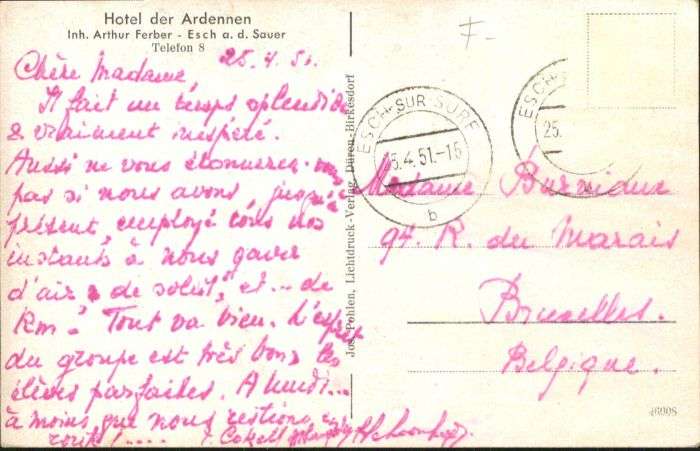 Hotel der Ardennen
Inh. Arthur Ferber - Esch a. d. Sauer
Telefon 8
25.4.51.
Chère Madame,
Il fait un temps splendide
& vraiment inespéré.
Aussi ne vous étonnerez-vous
pas si nous avons, jusqu'à
présent, employé tous nos
instants à nous gaver
d'air, de soleil, et... de
Km! Tout va bien. L'esprit
du groupe est très bon, les
élèves parfaites. A lundi...
à moins que nous restions en
route!....
Jos. Pohlen, Lichtdruck-Verlag, Düren-Birkesdorf
ESCH-SUR-SURE
25.4.51.-15
b
ESCH
25.
Madame
94. R. du Marais
Bruxelles.
Belgique.
46908